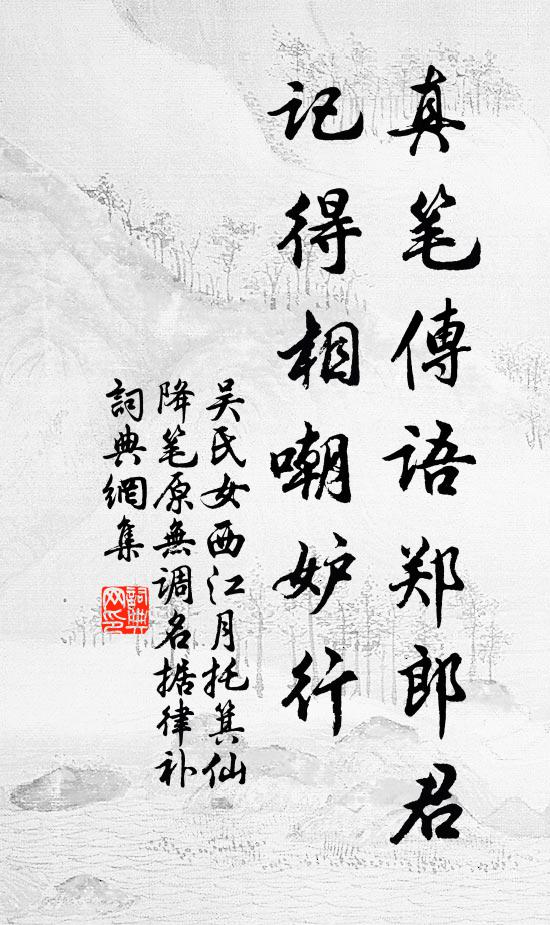 真笔傳语郑郎君
记得相嘲妒行
吴氏女西江月托箕仙
降笔原無调名据律补
詞典網集
詞典
网印